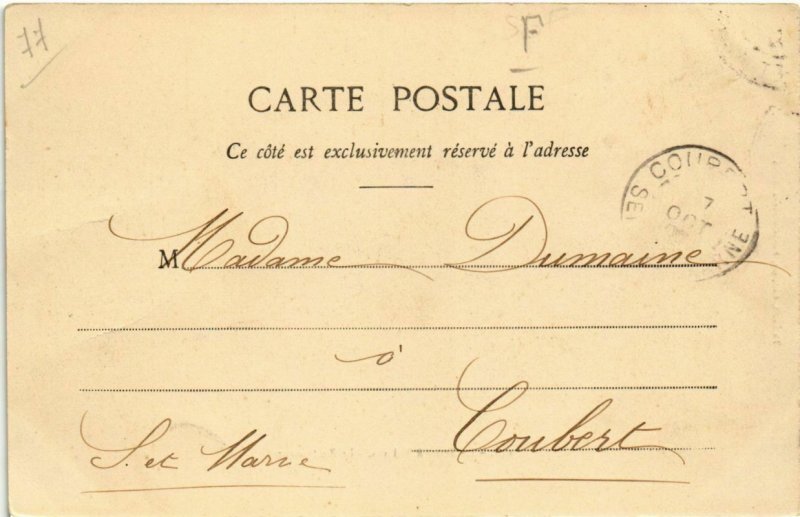 77
F
CARTE POSTALE
Ce côté est exclusivement réservé à l'adresse
COUBERT
7
OCT
M Madame Dumaine
à
Coubert
S. et Marne